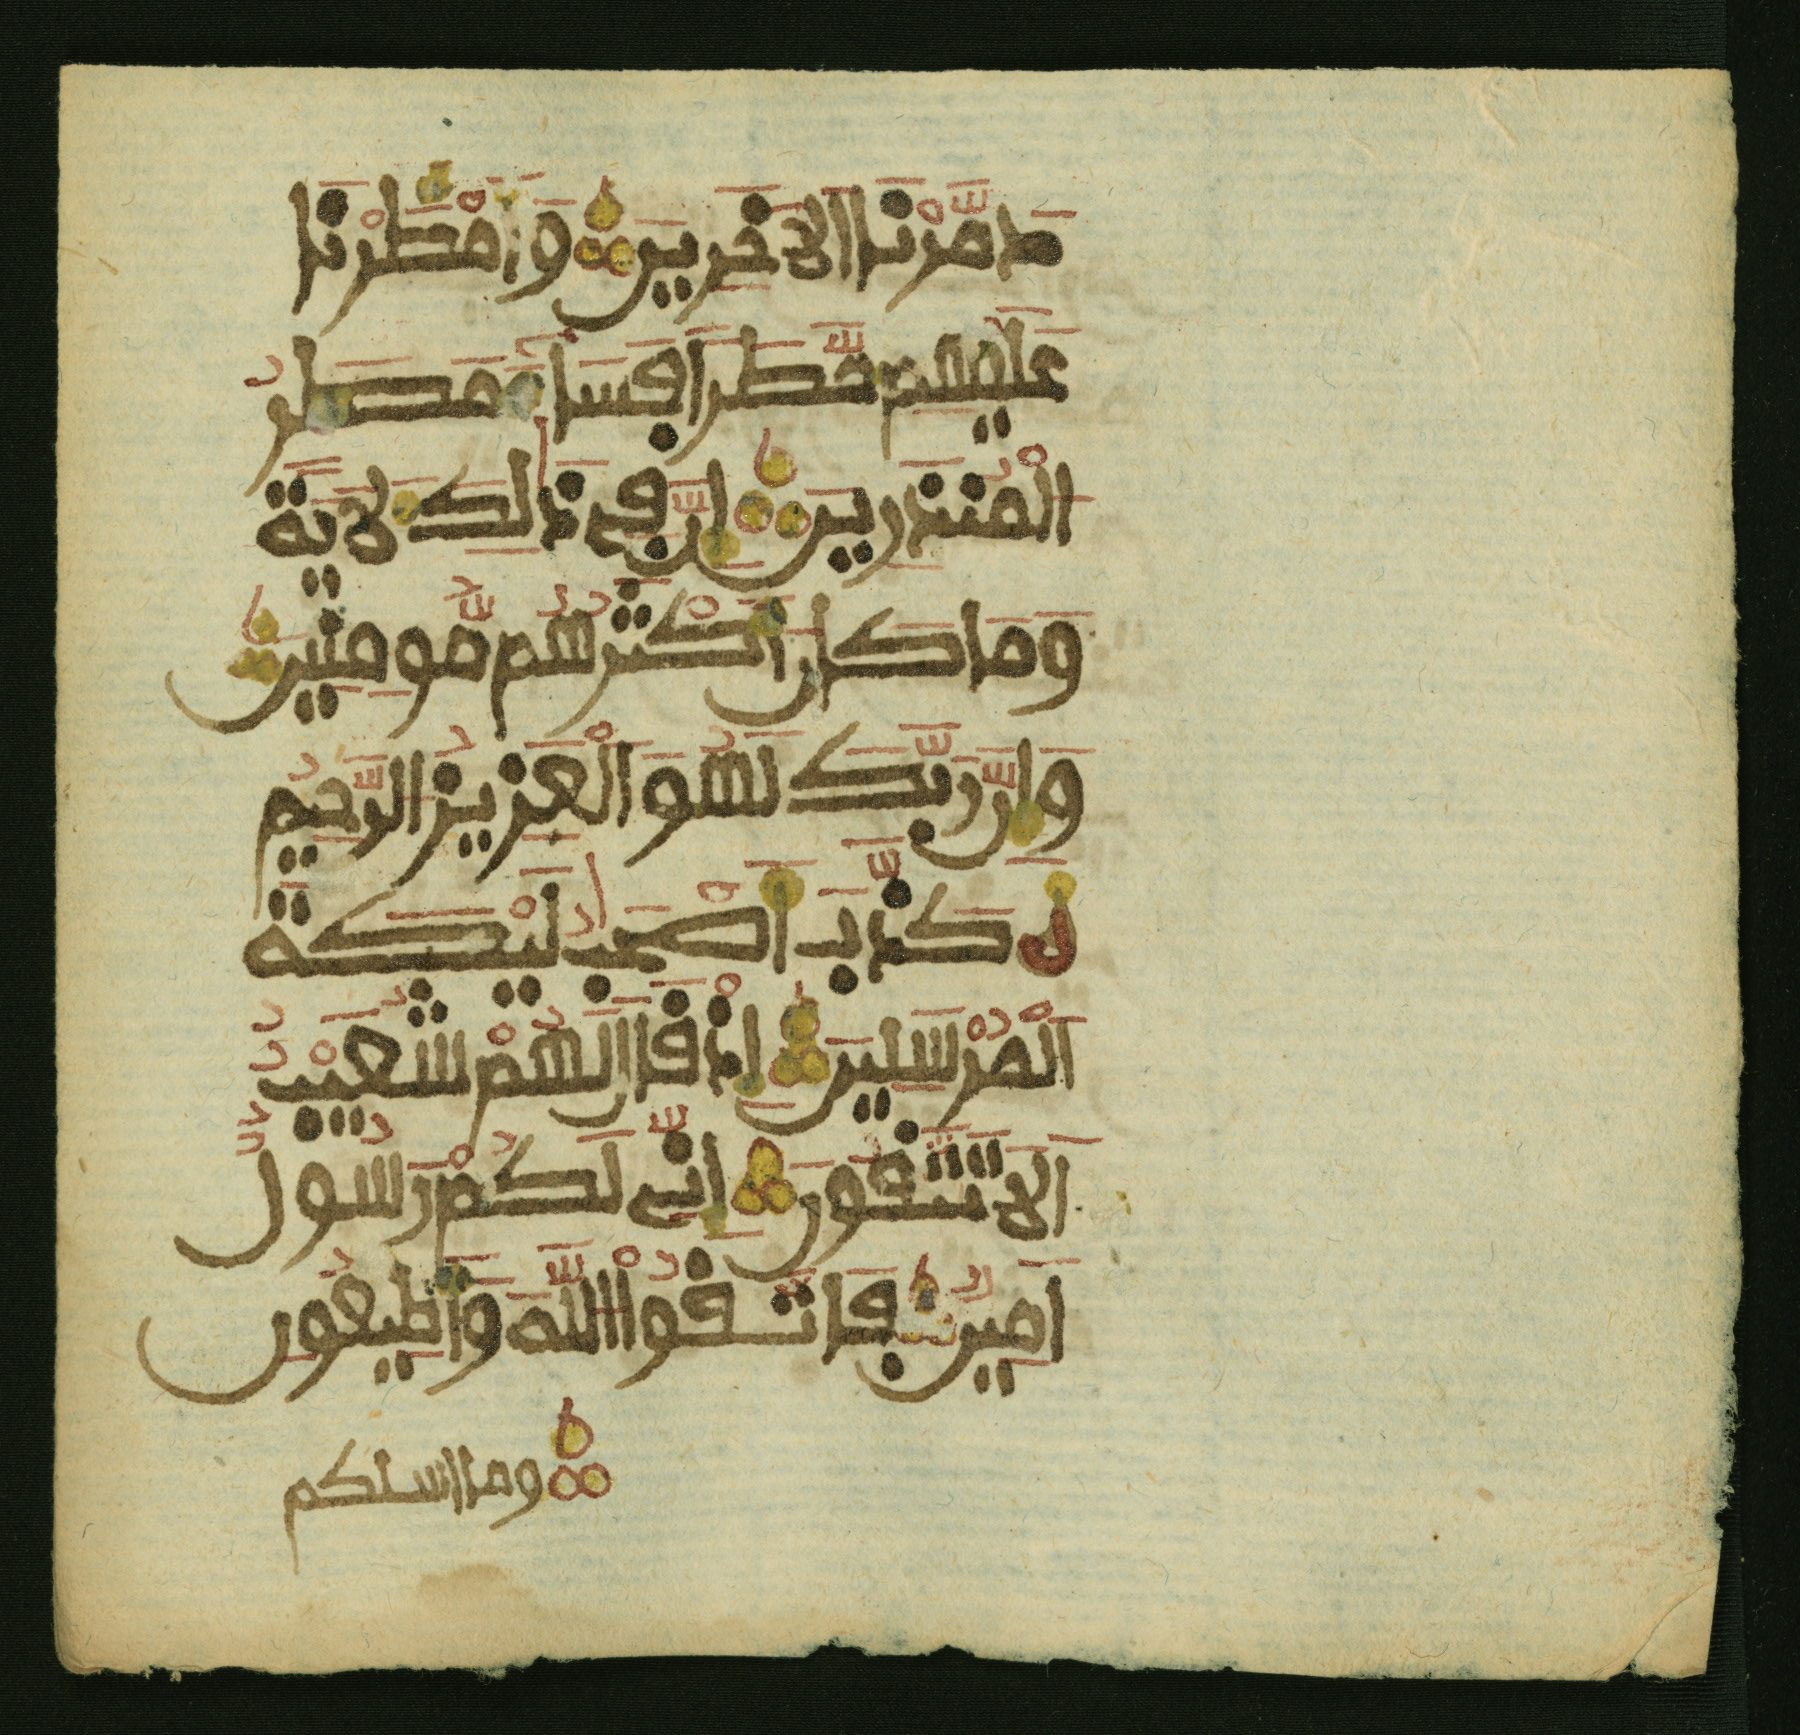 دَمَّرْنَا الَاخَرِينَ وَأَمْطَرْنَا
عَلَيْهِم مَّطَرًا فَسَاءَ مَطَرُ
الْمُنذَرِينَ إِنَّ فِي ذَٰلِكَ لَأيَةً
وَمَا كَانَ أَكْثَرُهُم مُّومِنِينَ
وَإِنَّ رَبَّكَ لَهُوَ الْعَزِيزُ الرَّحِيمُ
ل كَذَّبَ أَصْحَٰبُ لَيْكَةَ
الْمُرْسَلِينَ إِذْ قَالَ لَهُمْ شُعَيْبٌ
أَلَا تَتَّقُونَ إِنِّي لَكُمْ رَسُولٌ
أَمِينٌ فَاتَّقُوا اللَّهَ وَأَطِيعُونِ
وما اسلكم